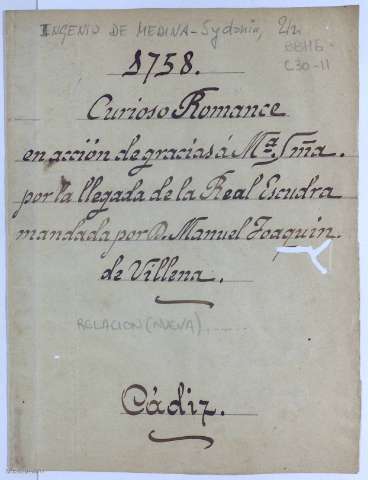 INGENIO DE MEDINA-Sydonia, 2/2.
BBHB
C30-11
1758.
Curioso Romance
en acción de gracias á Mª. Sña.
por la llegada de la Real Escudra
mandada por D. Manuel Joaquin.
de Villena.
RELACION (NUEVA) ......
Cádiz.